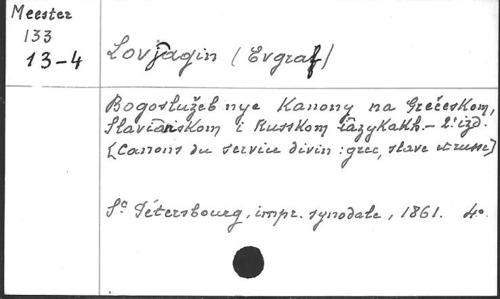 Meester
133
13-4
Lovjagin (Evgraf)
Bogoslužebnye Kanony na Grečeskom,
Slavianskom i Russkom iazykakh. - 2e izd.
[Canons du service divin : grec, slave et russe]
St Pétersbourg, impr. synodale, 1861. 4o.